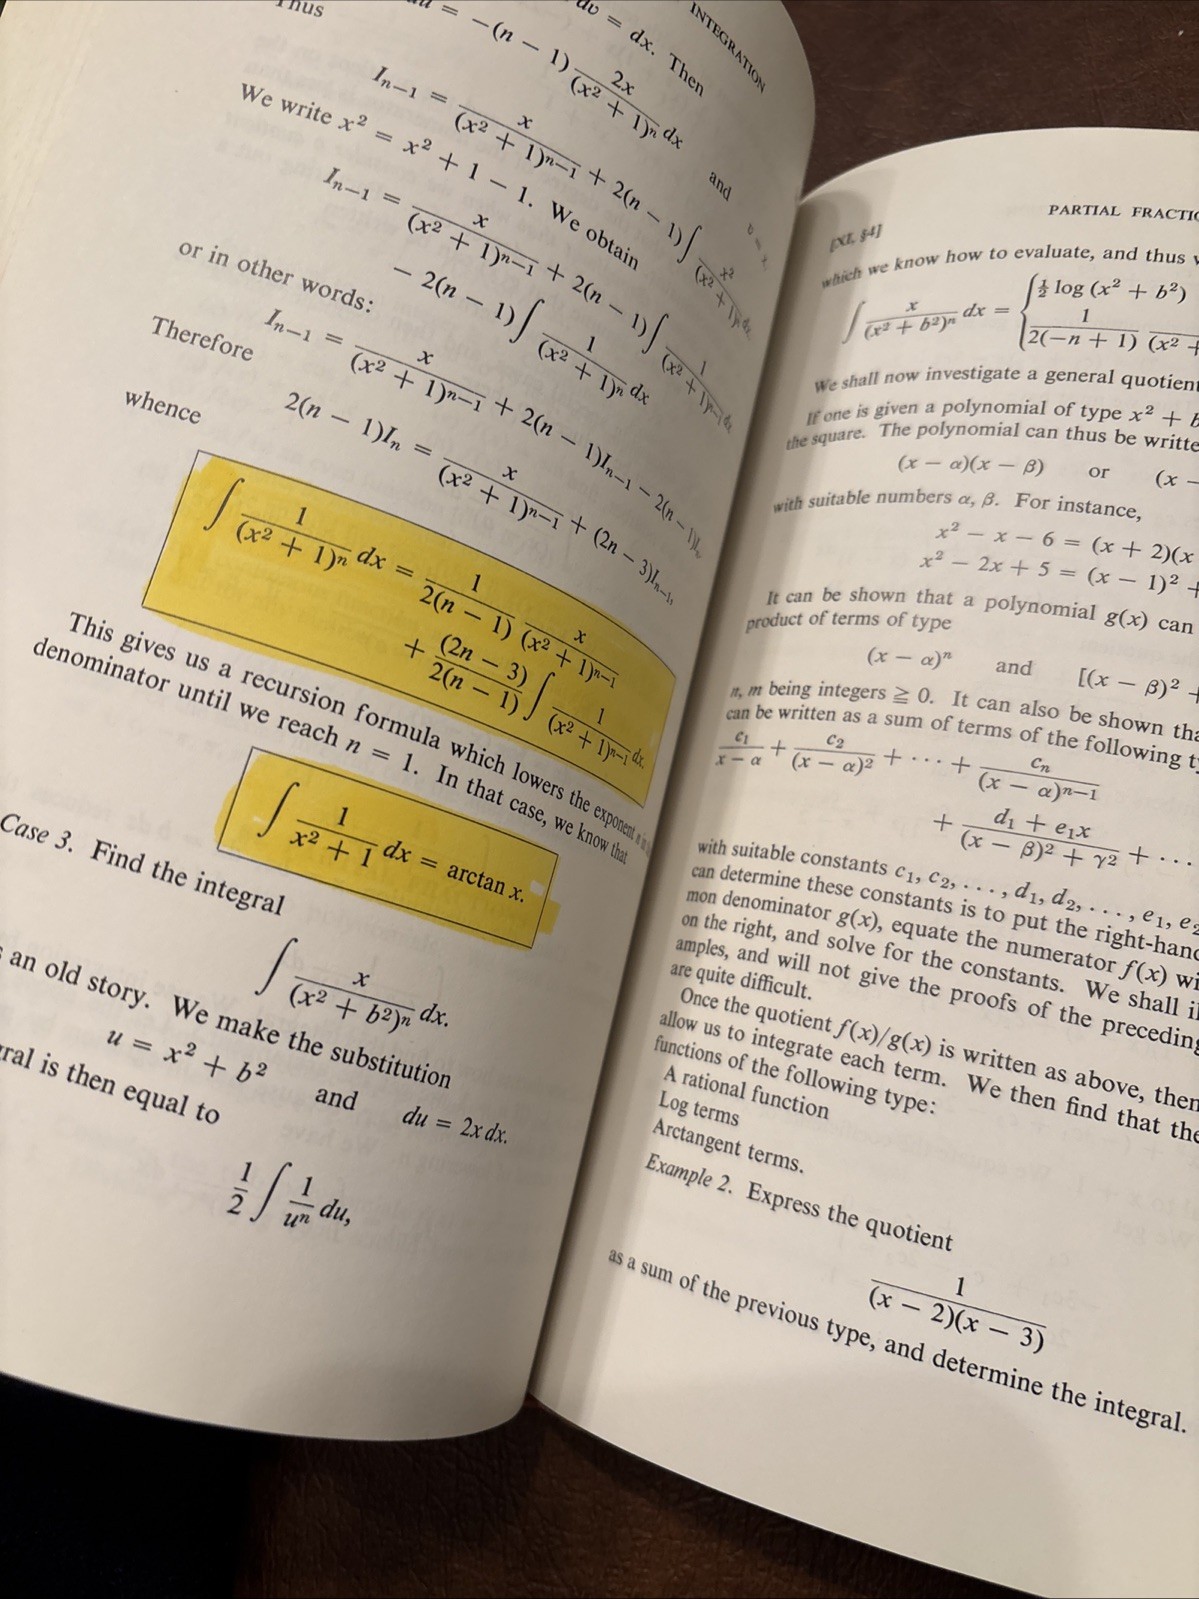 INTEGRATION
Thus
du = −(n − 1) 2x/(x² + 1)ⁿ dx and
dv = dx. Then
Iₙ₋₁ = x/(x² + 1)ⁿ⁻¹ + 2(n − 1) ∫ x²/(x² + 1)ⁿ dx.
We write x² = x² + 1 − 1. We obtain
Iₙ₋₁ = x/(x² + 1)ⁿ⁻¹ + 2(n − 1) ∫ 1/(x² + 1)ⁿ⁻¹ dx
− 2(n − 1) ∫ 1/(x² + 1)ⁿ dx
or in other words:
Iₙ₋₁ = x/(x² + 1)ⁿ⁻¹ + 2(n − 1)Iₙ₋₁ − 2(n − 1)Iₙ.
Therefore
2(n − 1)Iₙ = x/(x² + 1)ⁿ⁻¹ + (2n − 3)Iₙ₋₁,
whence
∫ 1/(x² + 1)ⁿ dx = 1/2(n − 1) x/(x² + 1)ⁿ⁻¹
+ (2n − 3)/2(n − 1) ∫ 1/(x² + 1)ⁿ⁻¹ dx.
This gives us a recursion formula which lowers the exponent n in
denominator until we reach n = 1. In that case, we know that
∫ 1/x² + 1 dx = arctan x.
Case 3. Find the integral
∫ x/(x² + b²)ⁿ dx.
an old story. We make the substitution
u = x² + b² and du = 2x dx.
ral is then equal to
1/2 ∫ 1/uⁿ du,
PARTIAL FRACTIO
[XI, §4]
which we know how to evaluate, and thus
∫ x/(x² + b²)ⁿ dx = { ½ log (x² + b²)
1/2(−n + 1) (x² +
We shall now investigate a general quotient
If one is given a polynomial of type x² + b
the square. The polynomial can thus be writte
(x − α)(x − β) or (x −
with suitable numbers α, β. For instance,
x² − x − 6 = (x + 2)(x
x² − 2x + 5 = (x − 1)² +
It can be shown that a polynomial g(x) can
product of terms of type
(x − α)ⁿ and [(x − β)² +
n, m being integers ≧ 0. It can also be shown tha
can be written as a sum of terms of the following t
c₁/x − α + c₂/(x − α)² + · · · + cₙ/(x − α)ⁿ⁻¹
+ d₁ + e₁x/(x − β)² + γ² + · · ·
with suitable constants c₁, c₂, . . . , d₁, d₂, . . . , e₁, e₂
can determine these constants is to put the right-hand
mon denominator g(x), equate the numerator f(x) wi
on the right, and solve for the constants. We shall il
amples, and will not give the proofs of the preceding
are quite difficult.
Once the quotient f(x)/g(x) is written as above, then
allow us to integrate each term. We then find that the
functions of the following type:
A rational function
Log terms
Arctangent terms.
Example 2. Express the quotient
1/(x − 2)(x − 3)
as a sum of the previous type, and determine the integral.